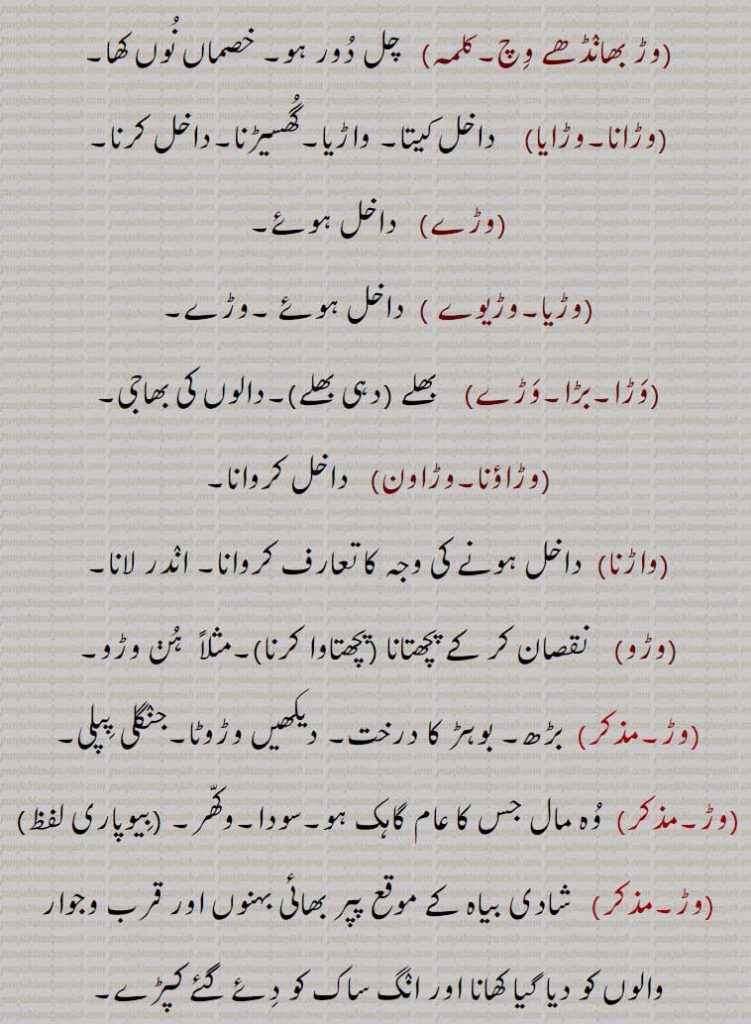 (وڑ بھانٛڈھے وِچ۔کلمہ) چل دُور ہو۔ خصماں نُوں کھا۔
(وڑانا۔وڑایا) داخل کیتا۔ واڑیا۔گُھسیڑنا۔داخل کرنا۔
(وڑے) داخل ہوئے۔
(وڑیا۔وڑیوے ) داخل ہوئے ۔وڑے۔
(وَڑا۔بڑا۔وَڑے) بھلے (دہی بھلے)۔دالوں کی بھاجی۔
(وڑاؤنا۔وڑاون) داخل کروانا۔
(واڑنا) داخل ہونے کی وجہ کا تعارف کروانا۔ انٛدر لانا۔
(وڑو) نقصان کر کے پچھتانا (پچھتاوا کرنا)۔مثلاً ہُن وڑو۔
(وڑ۔مذکر) بڑھ۔ بوہڑ کا درخت۔ دیکھیں وڑوٹا۔جنٛگلی پِپلی۔
(وڑ۔مذکر) وُہ مال جس کا عام گاہک ہو۔سودا۔وکھّر۔ (بِیوپاری لفظ)
(وڑ۔مذکر) شادی بیاہ کے موقع پیپر بھائی بہنوں اور قرب وجوار
والوں کو دیا گیا کھانا اور انٛگ ساک کو دِئے گئے کپڑے۔